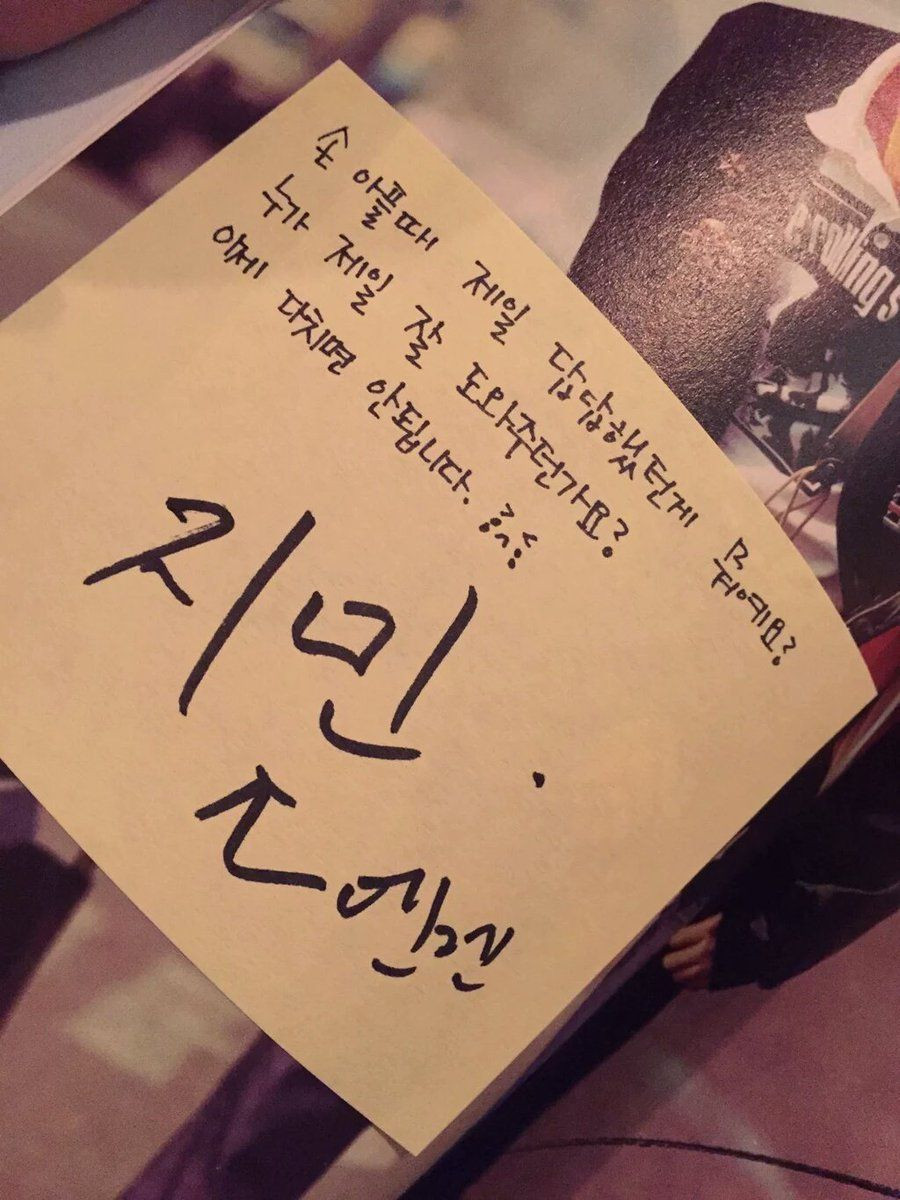 손 아플때 제일 답답했던게 뭐예요?
누가 제일 잘 도와주던가요?
이제 다치면 안됩니다.
지민.
erolling s